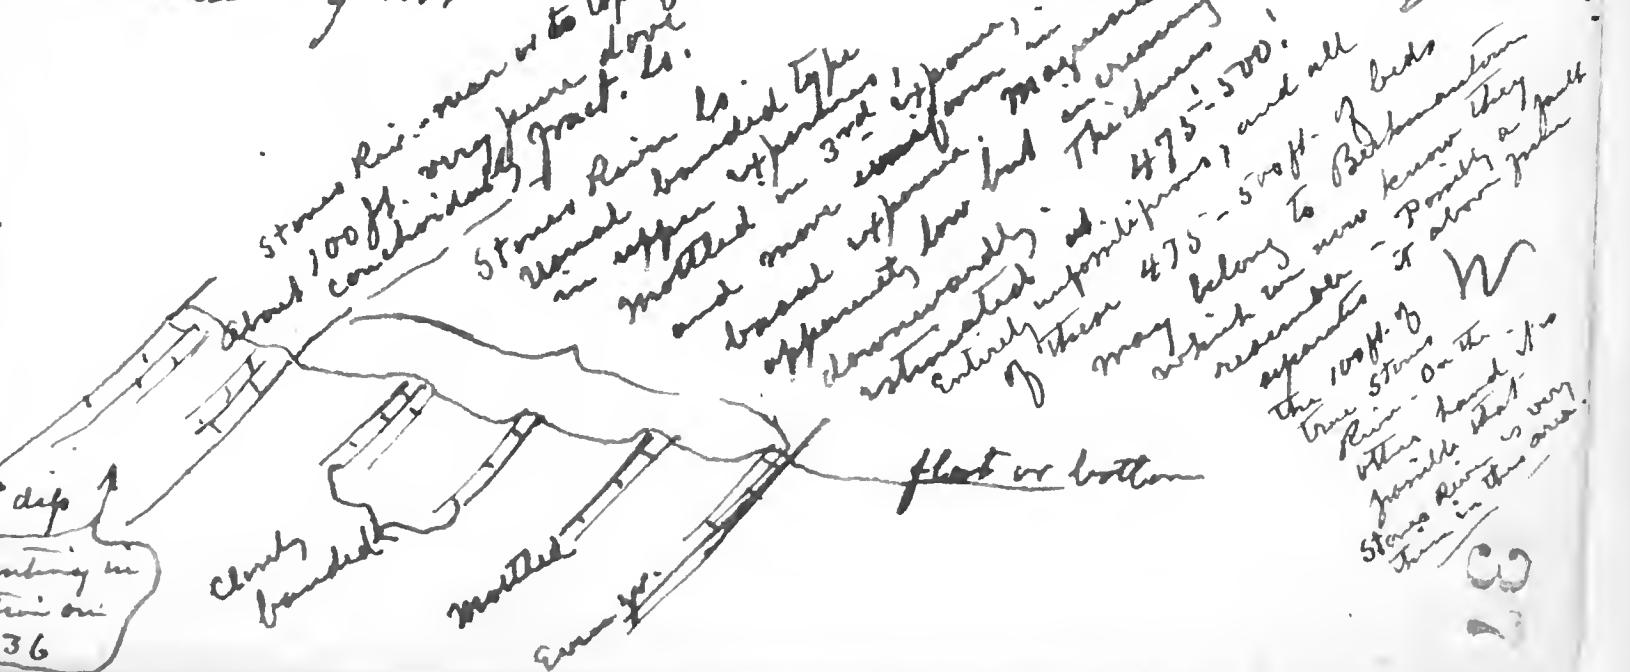 Stones Riv. - near or to top
About 100 ft. very pure dove
conchoidally fract. ls.
Stones River ls.
Usual banded type
in upper exposures;
Mottled in 3rd exposure,
and more uniform in
basal exposure.
apparently low but increasing
downwardly. Thickness
estimated at 475-500'.
Entirely unfossiliferous, and all
of these 475-500 ft. of beds
may belong to Beekmantown
which we now know they
resemble - Possibly a fault
separates it above from
the 100 ft. of
true Stones
River - On the
other hand it is
possible that
Stones River is very
thin in this area.
float or bottom
dip
Closely
banded
Mottled
Even gr.
36
37